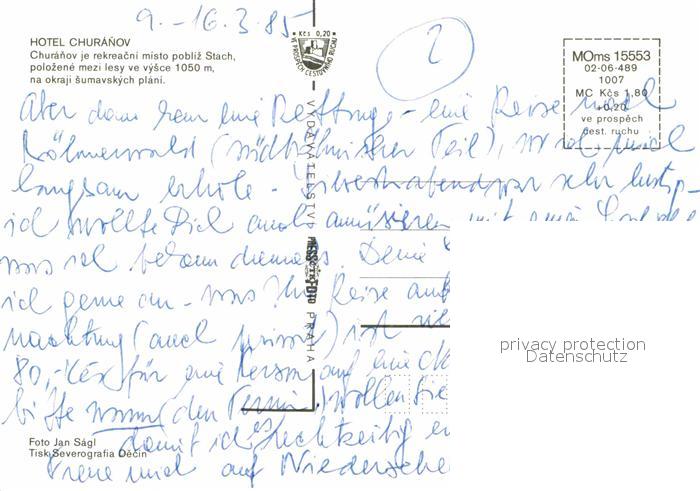 9.-16.3.85
Kčs 0,20
VE PROSPĚCH CESTOVNÍHO RUCHU
2
HOTEL CHURÁŇOV
Churáňov je rekreační místo poblíž Stach,
položené mezi lesy ve výšce 1050 m,
na okraji šumavských plání.
MOms 15553
02-06-489
1007
MC Kčs 1,80
+0,20
ve prospěch
cest. ruchu
Aber dann kam eine Rettung - eine Reise nach
Böhmerwald (südböhmischer Teil), wo ich mich
langsam erhole. Silvesterabend war sehr lustig -
ich wollte Dich auch amüsieren mit
was ich bekam Deine
ich gerne an - was Ihre Reise
nachtung (auch privat) ist
80,- Kčs für eine Person auf eine
bitte wann (den Termin) wollen Sie
damit ich es rechtzeitig
Freue mich auf Wiedersehe
VYDAVATELSTVÍ
PRESSFOTO
PRAHA
privacy protection
Datenschutz
Foto Jan Ságl
Tisk Severografia Děčín